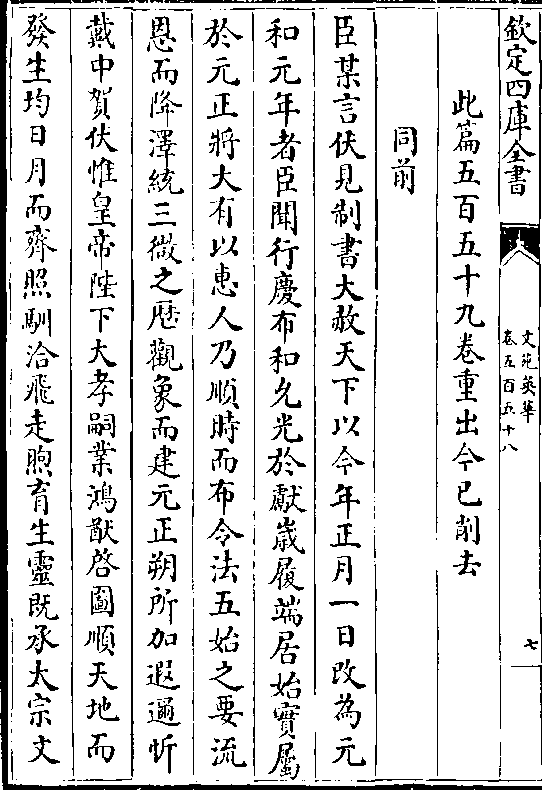 欽定四庫全書
文苑英華
卷五百五十八
七
此篇五百五十九卷重出今已削去
同前
臣某言伏見制書大赦天下以今年正月一日改為元
和元年者臣聞行慶布和允光於獻歲履端居始實屬
於元正將大有以惠人乃順時而布令法五始之要流
恩而降澤統三微之厯觀象而建元正朔所加遐邇忻
戴中賀伏惟皇帝陛下大孝嗣業鴻猷啓圖順天地而
發生均日月而齊照馴洽飛走煦育生靈既承太宗文